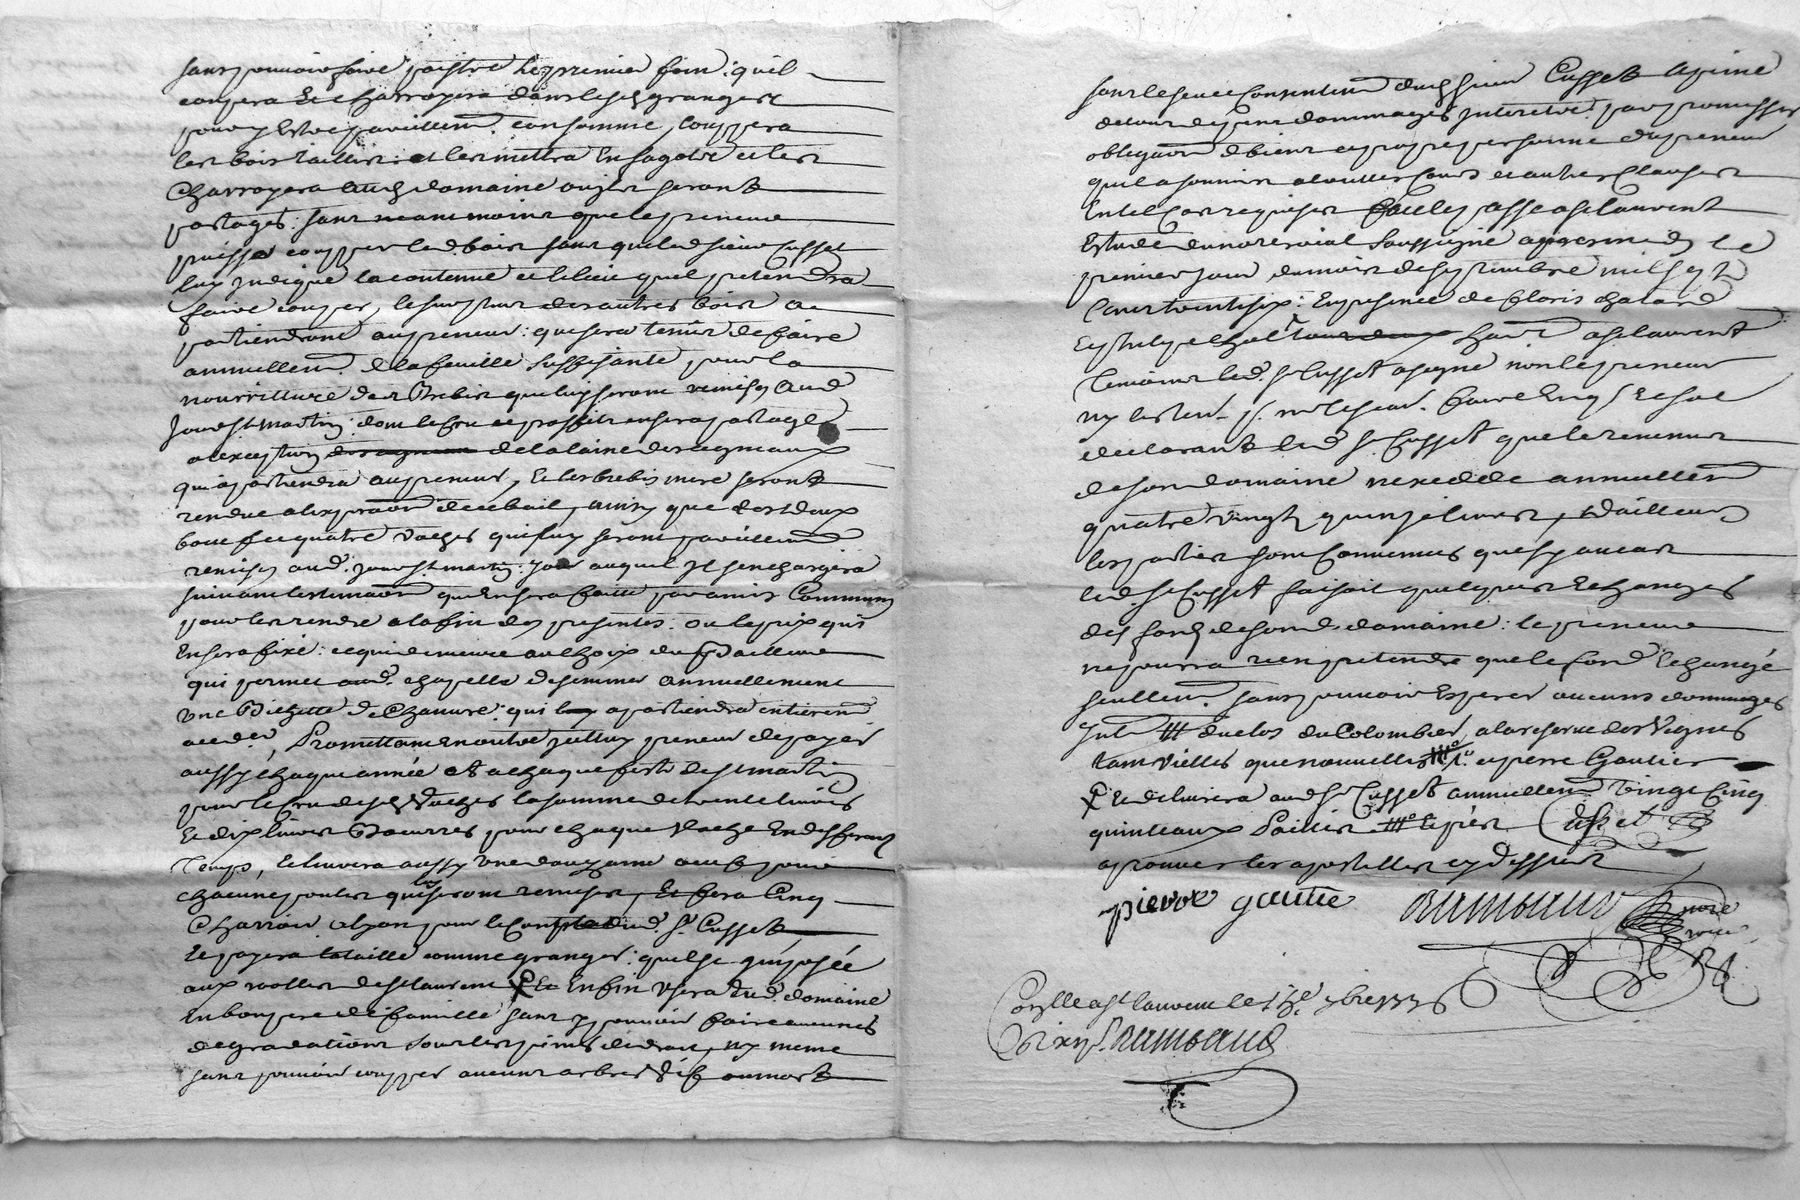 sans pouvoir faire paistre le premier foin: quil
coupera et charroyera dans lesd granges
pour y estre pareillem. consommé, couppera
les bois taillis et les mettra en fagots et les
charroyera aud domaine ou ils seront
partagés: sans neant moins que le preneur
puisse coupper led bois sans que led sieur Cusset
luy indique la contenue et le lieu quil pretendra
faire couper, le surplus des autres bois a
partiendront au preneur: que sera tenur de faire
annuellem. de la feuille suffisante pour la
nourriture des Brebis que luy seront remises aud
jour st martin: dont le cru et proffit en sera partagé
a lexception de la laine des agneaux
qui apartiendra au preneur, et les brebis mere seront
rendue a lexpiraon de ce bail, ainsy que les deux
boeuf et quatre vaches qui luy seront pareillem
remises aud. jour st martin: jour auquel il sen chargera
suivant lestimaon que en sera faitte par amis communs
pour les rendre a la fin des presentes: ou le prix qui
en sera fixé: ce qui demeure au choix du Bailleur
qui permet aud. chapelle de semmer annuellement
une Bichette de chanvre: qui apartiendra entierem
aud er, Promettant en outre jcelluy preneur de payer
aussy chaque année et a chaque feste de st martin
pour le cru desd vaches la somme de trente livres
et dix livres Baeurres pour chaque vache en differants
temps, et livrera aussy une douzaine oeufs pour
chacune poules qui luy seront remises, et fera cinq
charrois a Lyon pour le compte dud. sr Cusset
et payera la taille comme granger: quil se imposée
aux rolles de st laurent et enfin usera dud. domaine
en bon pere de famille sans y pouvoir faire aucunes
degradations sous les peines de droit, ny meme
sans pouvoir coupper aucuns arbres vif ou mort
sans le sceu et consentem dud sieur Cusset a peine
de tous depens dommages interets etc. par promesses
obligaon de biens et propre personne du preneur
quil a soumise a touttes cours et autres clauses
en tel cas requises fait et passé a st laurent
estude du notre royal soussigné apres midy le
premier jour du mois de septembre mil sept
cents trente six: en presence de Cloris chatard
et a st laurent
temoins led. sr Cusset a signé non le preneur
ny les tem. p. ne le scav. faire enq s et som
declarant led sr Cusset que le revenu
de son domaine nexedde annuellem
quatre vingt quinze livres, dailleurs
les parties sont convenues que sy au cas
led. sr Cusset faisait quelques echanges
des fonds de sond. domaine: le preneur
ne pourra rien pretendre que le fond echangé
seullem. sans pouvoir esperer aucuns dommages
Int. du clos du Colombier, a la reserve des vignes
tant vielles que nouvelles et pierre Gautier
et delivrera aud sr Cusset annuellem vingt cinq
quinteaux Cusset
aprouver les apostilles cy dessus
pierre gautie Rambaud nore
roial
Conlle a st laurent le 13e. 7bre 1736
Rambaud